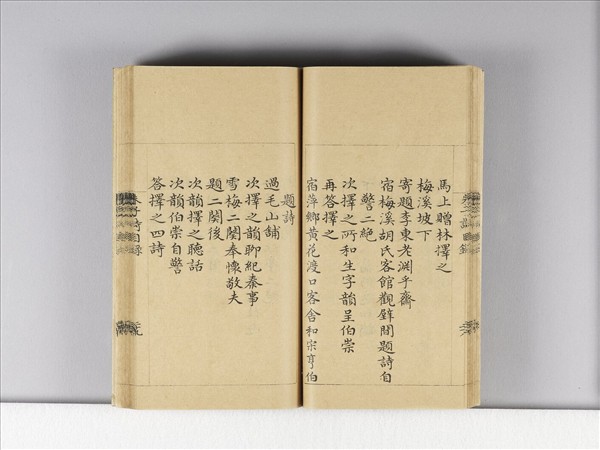 馬上贈林擇之
梅溪坡下
寄題李東老淵乎齋
宿梅溪胡氏客館觀壁間題詩自
警二絶
次擇之所和生字韻呈伯崇
再答擇之
宿萍鄉黃花渡口客舍和宗亨伯
題詩
過毛山舖
次擇之韻聊紀泰事
雪梅二闋奉懷敬夫
題二闋後
次韻擇之聽話
次韻伯崇自警
答擇之四詩